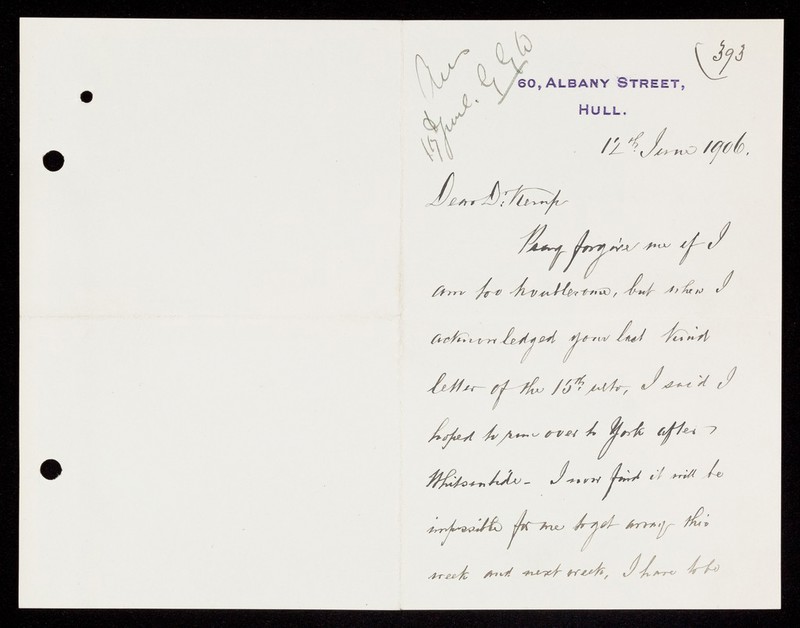 393
Ans
13 June. G G W
60, ALBANY STREET,
HULL.
12th June 1906.
Dear Dr. Kemp
Pray forgive me if I
am too troublesome, but when I
acknowledged your last kind
letter of the 15th ulto, I said I
hoped to run over to York after
Whitsuntide - I now find it will be
impossible for me to get away this
week and next week, I have to be